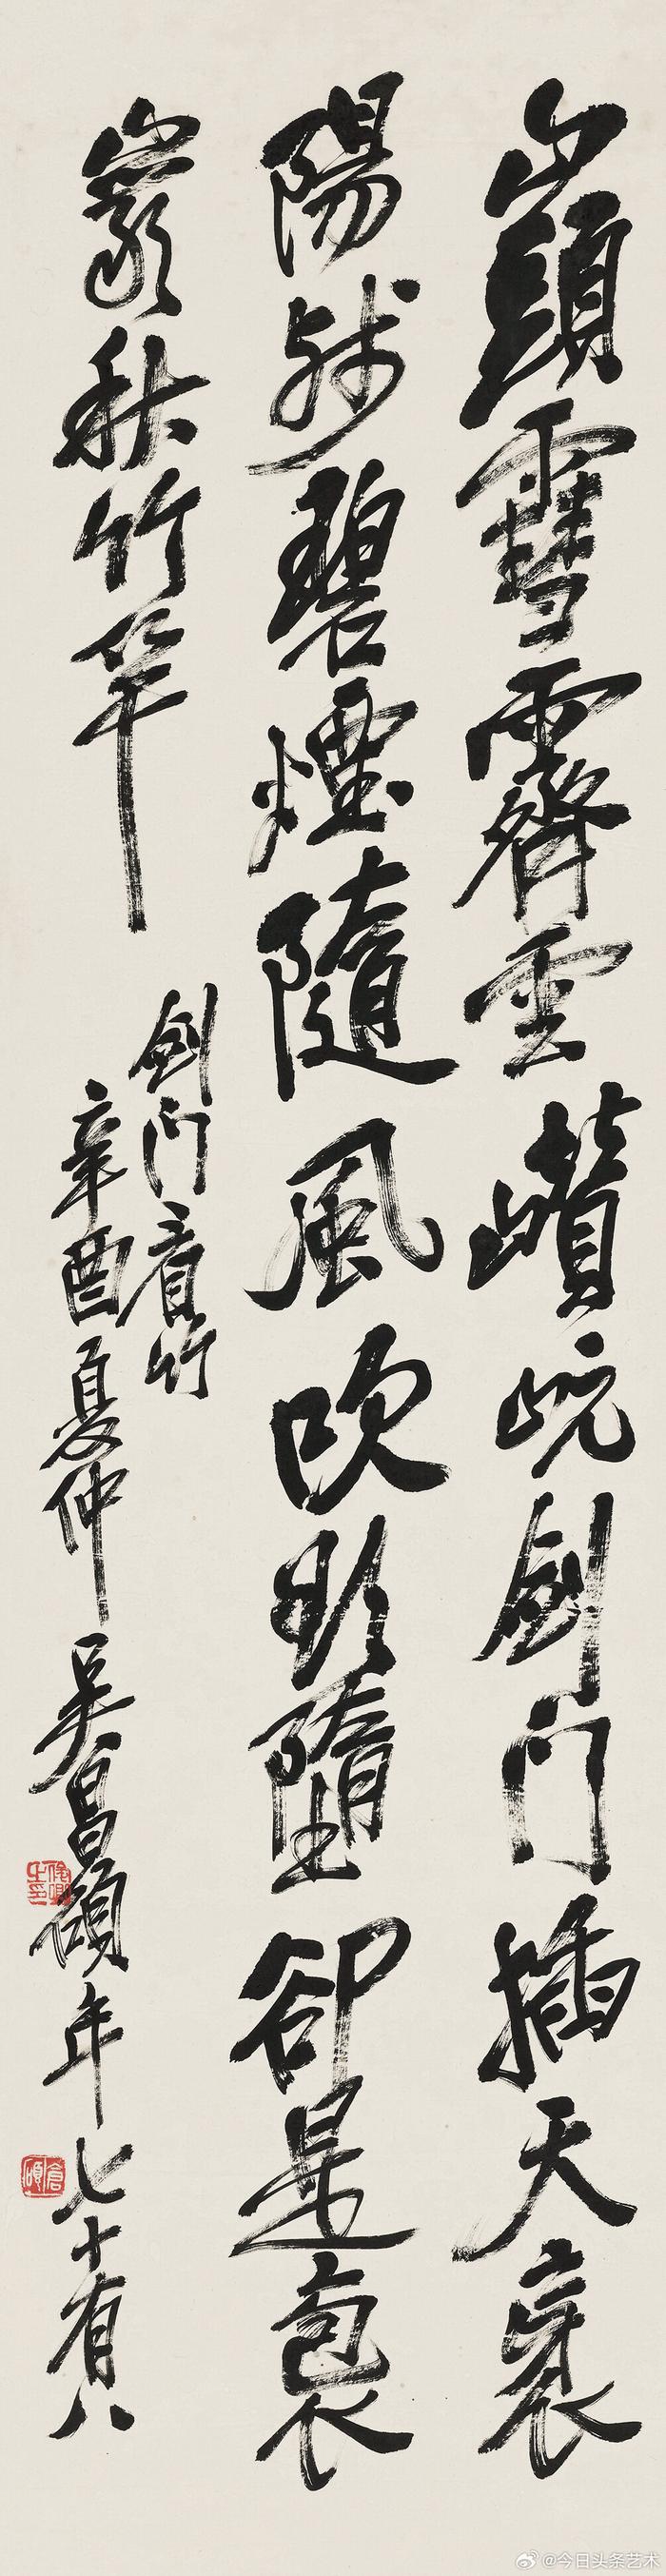 山頭雪霽雲巑岏劍門插天衰
陽殘碧煙隨風吹墮卻是袌
巖秋竹竿
劍門看竹
辛酉夏仲吳昌碩年七十有八
俊卿之印
倉碩
@今日头条艺术